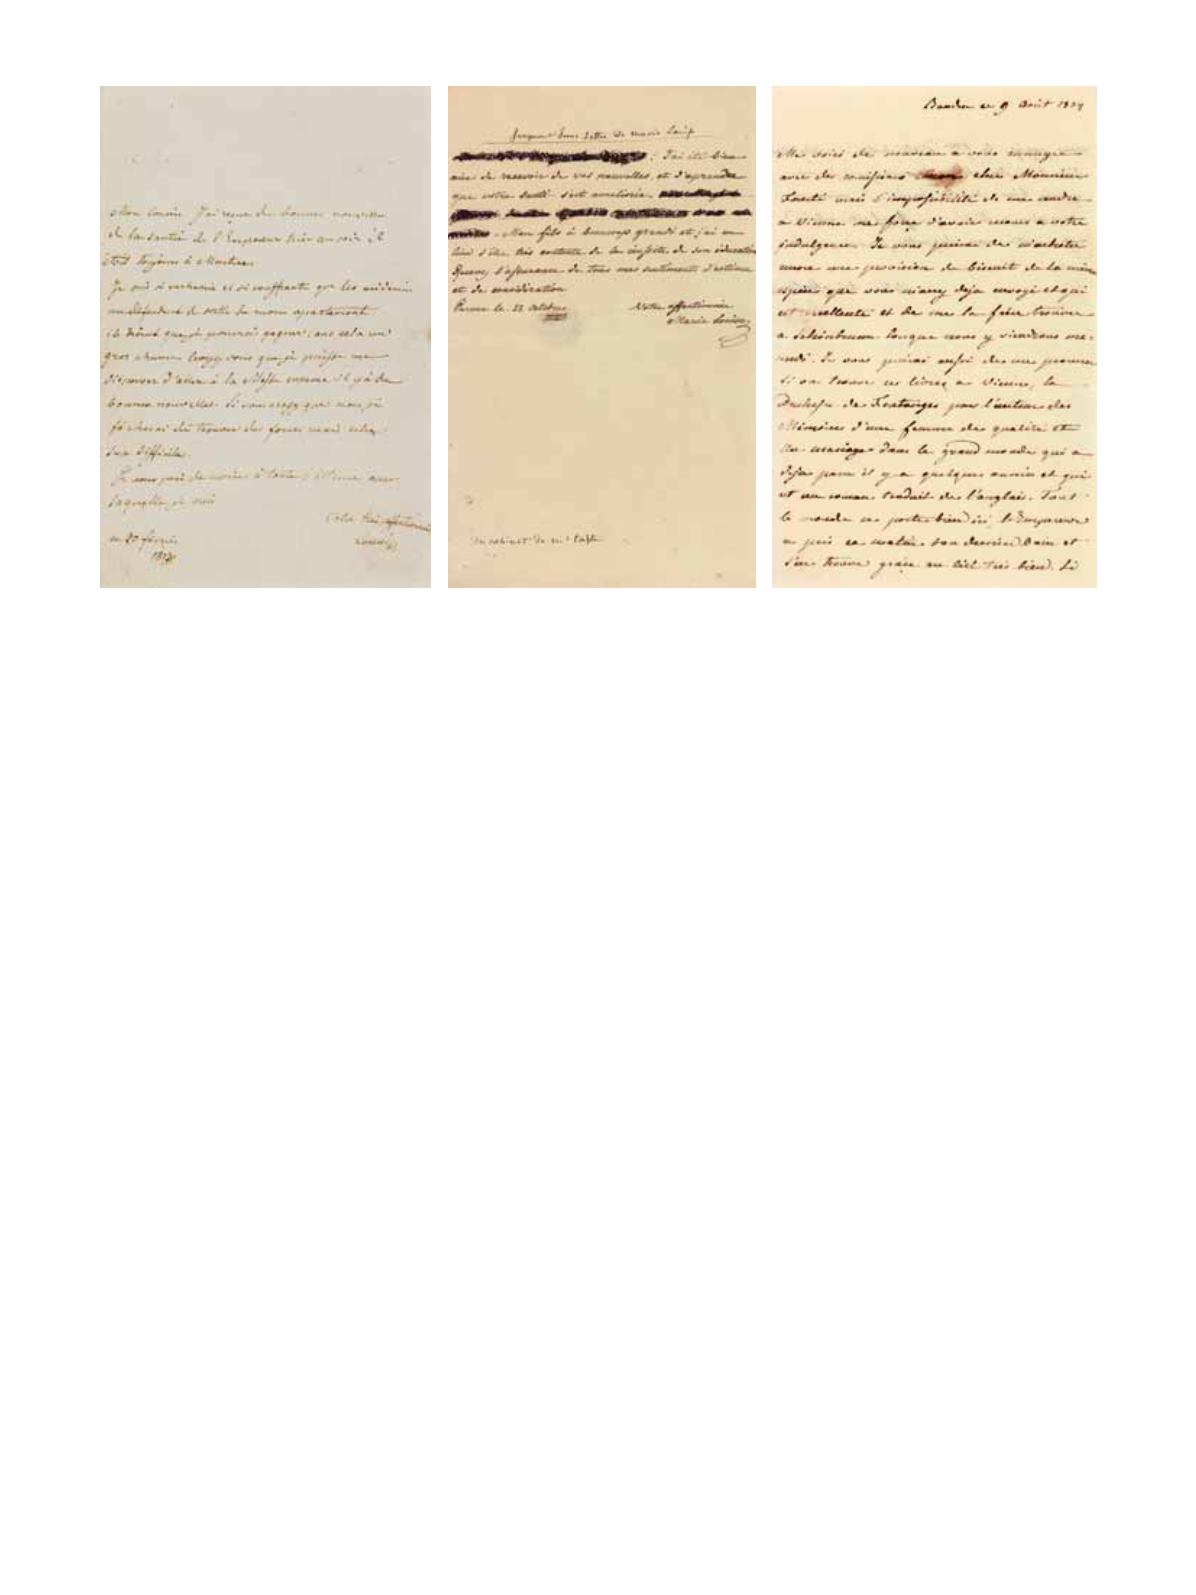 Mon Cousin. J'ai reçue de bonnes nouvelles
de la santé de l'Empereur hier au soir il
étoit toujours à
Je suis si et si souffrante que les médecins
me défendent de sortir de mon apartement
que je pourrois gagner, avec cela un
gros rhume. Croyez vous que je puisse me
dispenser d'aller à la Messe comme il y a de
bonnes nouvelles. Si vous croyez que non, je
tâcherai de trouver des forces mais cela
sera difficile.
Je vous prie de croire à toute l'estime avec
laquelle je suis
Votre très affectionnée
Louise
ce 20 février
d'une lettre de Marie Louise
: J'ai été bien
aise de recevoir de vos nouvelles, et d'aprendre
que votre santé soit améliorée.
. Mon fils a beaucoup grandi et j'ai eu
lieu d'être très contente de la de son éducation
Recevez l'assurance de tous mes sentiments d'estime
et de considération
Parme le 22 octobre
Votre affectionnée
Marie Louise
du cabinet de Mr
ce 9 Août
Me voici de nouveau à vous ennuyer
avec des comissions cher Monsieur
mais l'impossibilité de me rendre
à Vienne me force d'avoir recours à votre
indulgence. Je vous prierai de m'acheter
encore une provision de biscuit de la même
espèce que vous m'avez deja envoyé et qui
est excellente et de me la faire trouver
à Schönbrunn lorsque nous y viendrons
. Je vous prierai aussi de me procurer
si on trouve ces livres à Vienne, la
Duchesse de Fontanges par l'auteur des
Mémoires d'une femme de qualité et
Un mariage dans le grand monde qui a
deja paru il y a quelques années et qui
est un roman traduit de l'anglais. Tout
le monde se porte bien ici, l'Empereur
a pris ce matin son dernier bain et
s'en trouve grace au ciel très bien. Si